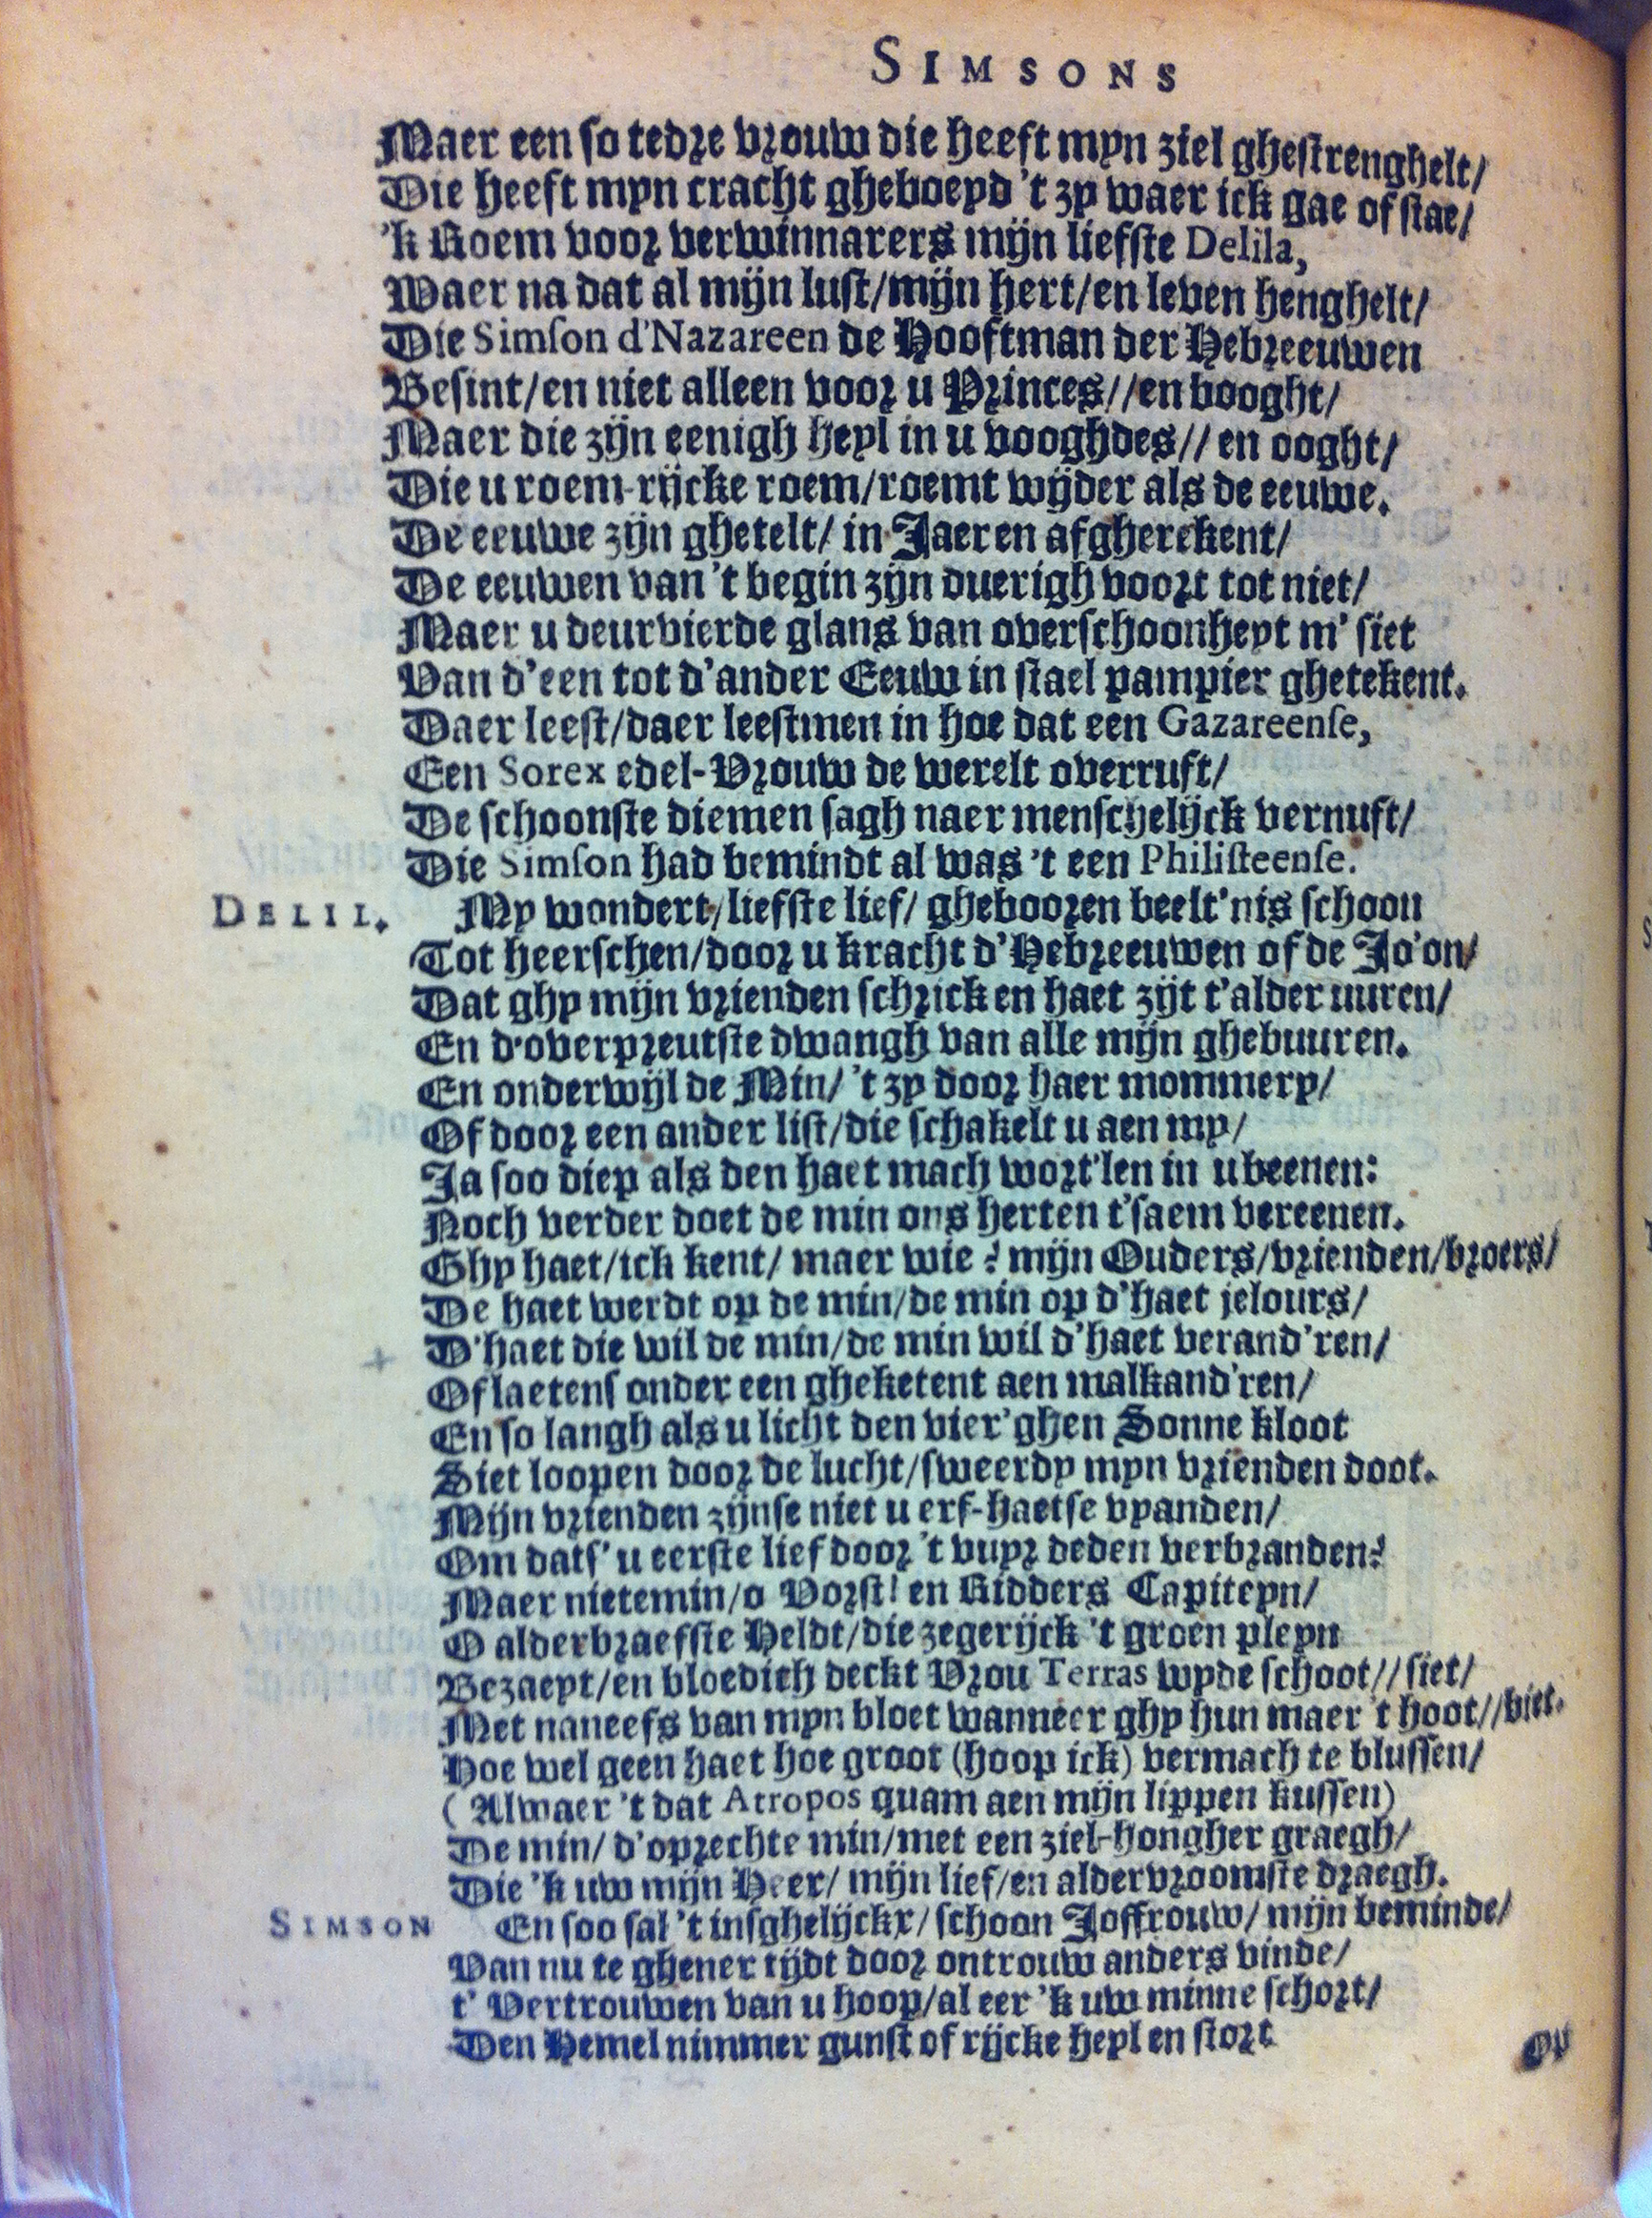 SIMSONS
Maer een so tedre vrouw die heeft myn ziel ghestrenghelt/
Die heeft myn cracht gheboeyd 't zy waer ick gae of stae/
'k Roem voor verwinnarers mijn liefste Delila,
Waer na dat al mijn lust/mijn hert/en leven henghelt/
Die Simson d'Nazareen de Hooftman der Hebreeuwen
Besint/en niet alleen voor u Princes//en booght/
Maer die zijn eenigh heyl in u vooghdes// en ooght/
Die u roem-rijcke roem/roemt wijder als de eeuwe.
De eeuwe zijn ghetelt/ in Jaeren afgherekent/
De eeuwen van 't begin zijn overigh voort tot niet/
Maer u deurvierde glans van overschoonheyt m' siet
Van d'een tot d'ander Eeuw in stael pampier ghetekent.
Daer leest/daer leestmen in hoe dat een Gazareense,
Een Sorex edel-Vrouw de werelt overruft/
De schoonste diemen sagh naer menschelijck vernuft/
Die Simson had bemindt al was 't een Philisteense.
DELIL. My wondert/liefste lief/ ghebooren beelt'nis schoon
Tot heerschen/door u kracht d'Hebreeuwen of de Jo'on/
Dat ghy mijn vrienden schrick en haet zijt t'alder uuren/
En d'overpreutste dwangh van alle mijn ghebuuren.
En onderwijl de Min/ 't zy door haer mommery/
Of door een ander list/die schakelt u aen my/
Ja soo diep als den haet mach wort'len in u beenen:
Noch verder doet de min ons herten t'saem vereenen.
Ghy haet/ick kent/ maer wie? mijn Ouders/vrienden/broers/
De haet werdt op de min/de min op d'haet jelours/
D'haet die wil de min/de min wil d'haet verand'ren/
Of laetens onder een gheketent aen malkand'ren/
En so langh als u licht den vier'ghen Sonne kloot
Siet loopen door de lucht/sweerdy myn vrienden doot.
Mijn vrienden zijnse niet u erf-haetse vyanden/
Om dats' u eerste lief door 't vuyr deden verbranden?
Maer nietemin/o Vorst! en Ridders Capiteyn/
O alderbraefste Heldt/die zegerijck 't groen pleyn
Bezaeyt/en bloedich deckt Vrou Terras wyde schoot// siet/
Met naneefs van myn bloet wanneer ghy hun maer 't hoot//biet.
Hoe wel geen haet hoe groot (hoop ick) vermach te blussen/
( Alwaer 't dat Atropos quam aen mijn lippen kussen)
De min/ d'oprechte min/met een ziel-hongher graegh/
Die 'k uw mijn Heer/ mijn lief/en aldervroomste draegh.
SIMSON En soo sal 't insghelijckx/ schoon Joffrouw/ mijn beminde/
Van nu te ghener tijdt door ontrouw anders vinde/
t' Vertrouwen van u hoop/al eer 'k uw minne schort/
Den Hemel nimmer gunst of rijcke heyl en stort
Op